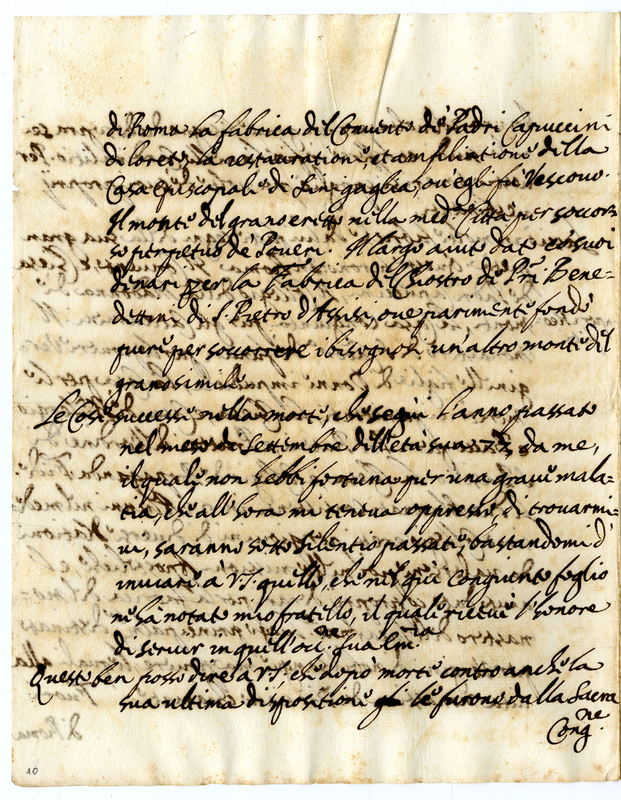 di Roma La fabrica del Convento dè Padri Capuccini
di loreto, la restauratione, et amfiliatione della
Casa Episcopale di Sinigaglia, ou'egli fù Vescouo.
Il monte del grano eretto nella med.ma Città per soccor=
so perpetuo dè Poueri. Il largo aiuto dato co' suoi
denari per la Fabrica del Chiostro dè Pri Bene=
dettini di S. Pietro d'Assisi, oue parimente fondò
pure per soccorrere i bisognosi un'altro monte del
grano simile.
Le Cose successe nella morte, che seguì l'anno passato
nel mese di Settembre dell'età sua 73, da me,
il quale non hebbi fortuna per una graue mala=
tia, che all'hora mi teneua oppresso di trouarmi=
ui, saranno sotto silentio passate, bastandomi d'
inuiare à V.S. quello, che nel quì congiunto foglio
ne hà notate mio fratello, il quale riceuè l'honore
di seruir in quell'occ.ne sua Em.ria
Queste ben posso dire à V.S. che dopò morte contro anche la
sua ultima dispositione le furono dalla Sacra
Cong.ne
di Roma
10